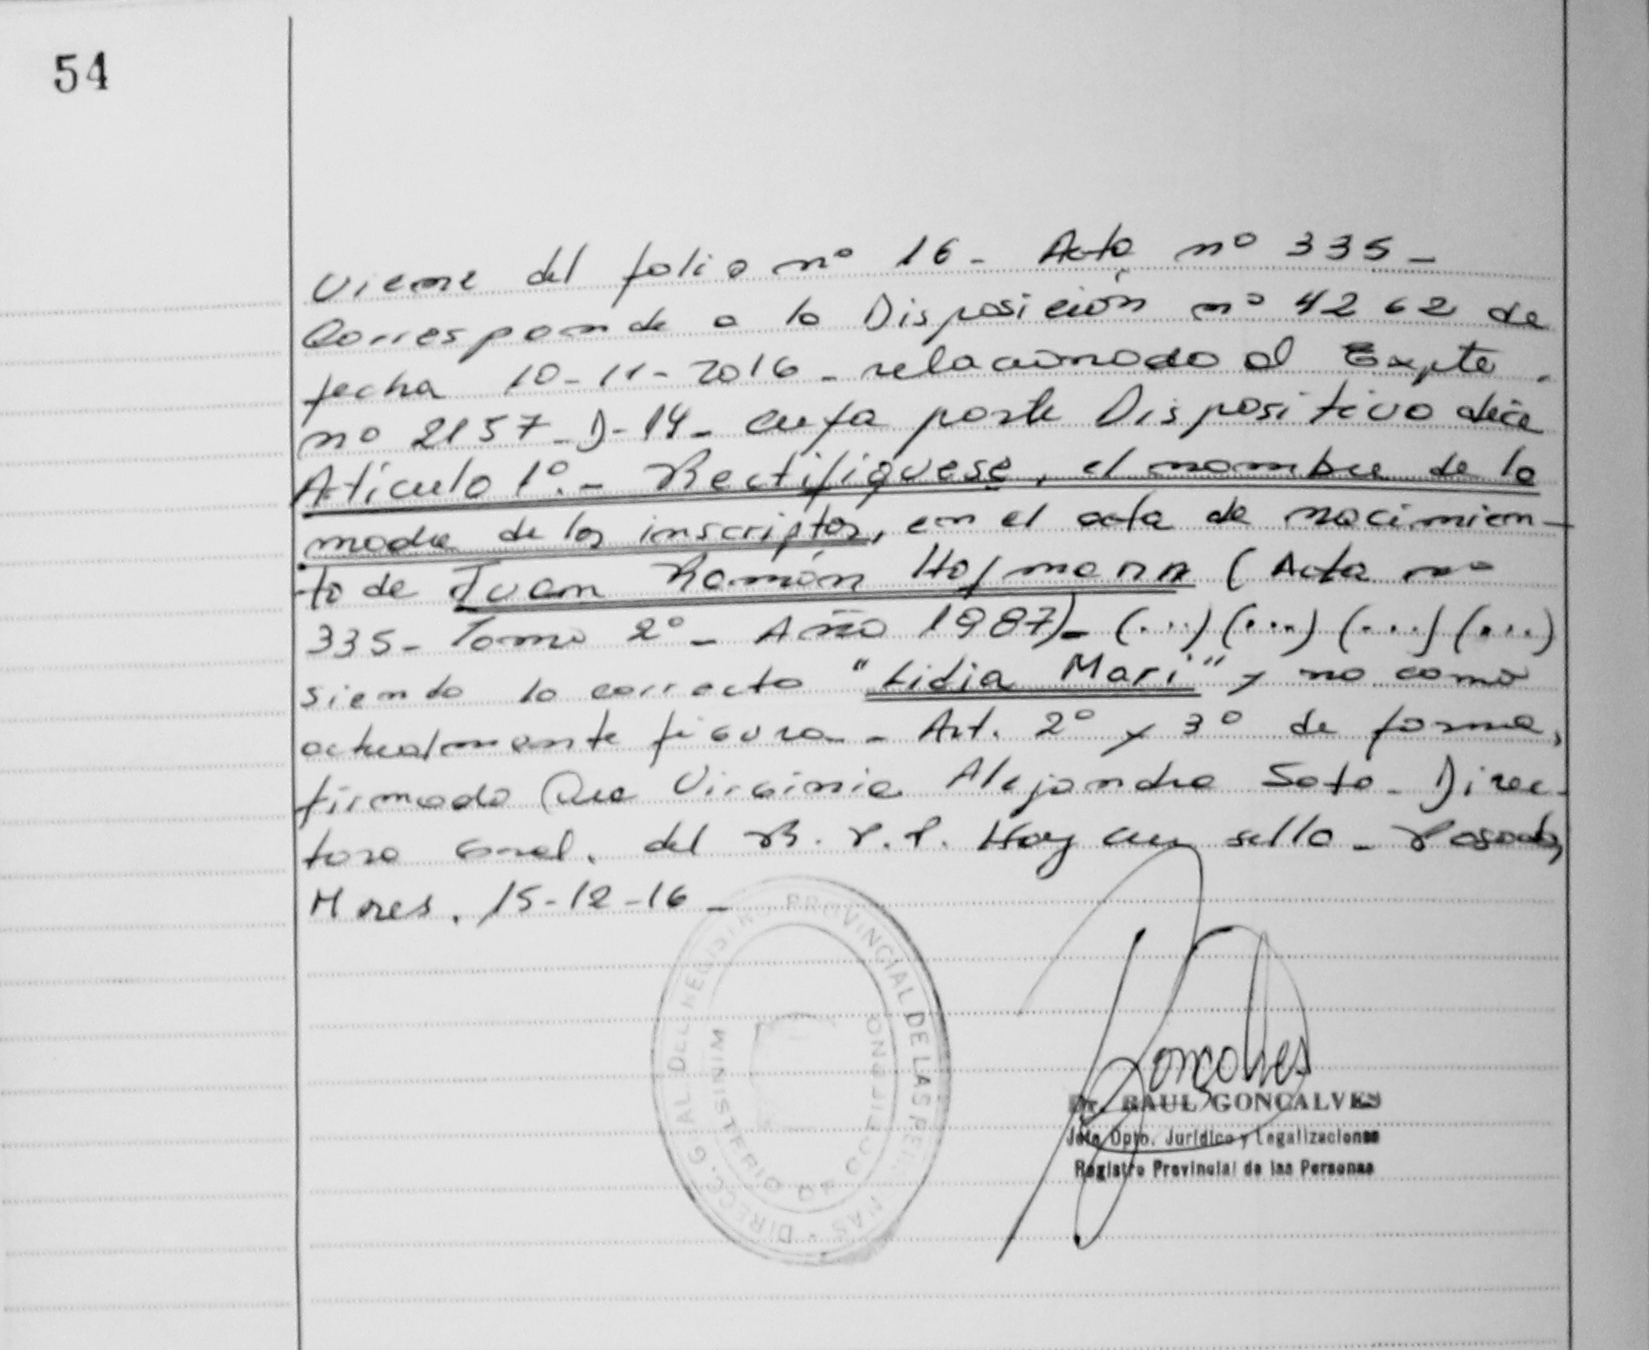 54
Viene del folio nº 16 - Acta nº 335 -
Corresponde a la Disposición nº 4262 de
fecha 10-11-2016 - relacionado al Expte.
nº 2157-D-14 - cuya parte Dispositiva dice
Artículo 1º.- Rectifíquese, el nombre de la
madre de los inscriptos, en el acta de nacimien-
to de Juan Ramón Hofmann (Acta nº
335 - Tomo 2º - Año 1987) - (...) (...) (...) (...)
siendo lo correcto "Lidia Mari" y no como
actualmente figura - Art. 2º y 3º de forma,
firmado Dra Virginia Alejandra Soto - Direc-
tora Gral. del R.P.P. Hay un sello - Posadas,
Mnes, 15-12-16 -
DIRECC. G'AL DEL REGISTRO PROVINCIAL DE LAS PERSONAS
MINISTERIO DE GOBIERNO
Goncalves
Dr. RAUL GONCALVES
Jefe Dpto. Jurídico y Legalizaciones
Registro Provincial de las Personas